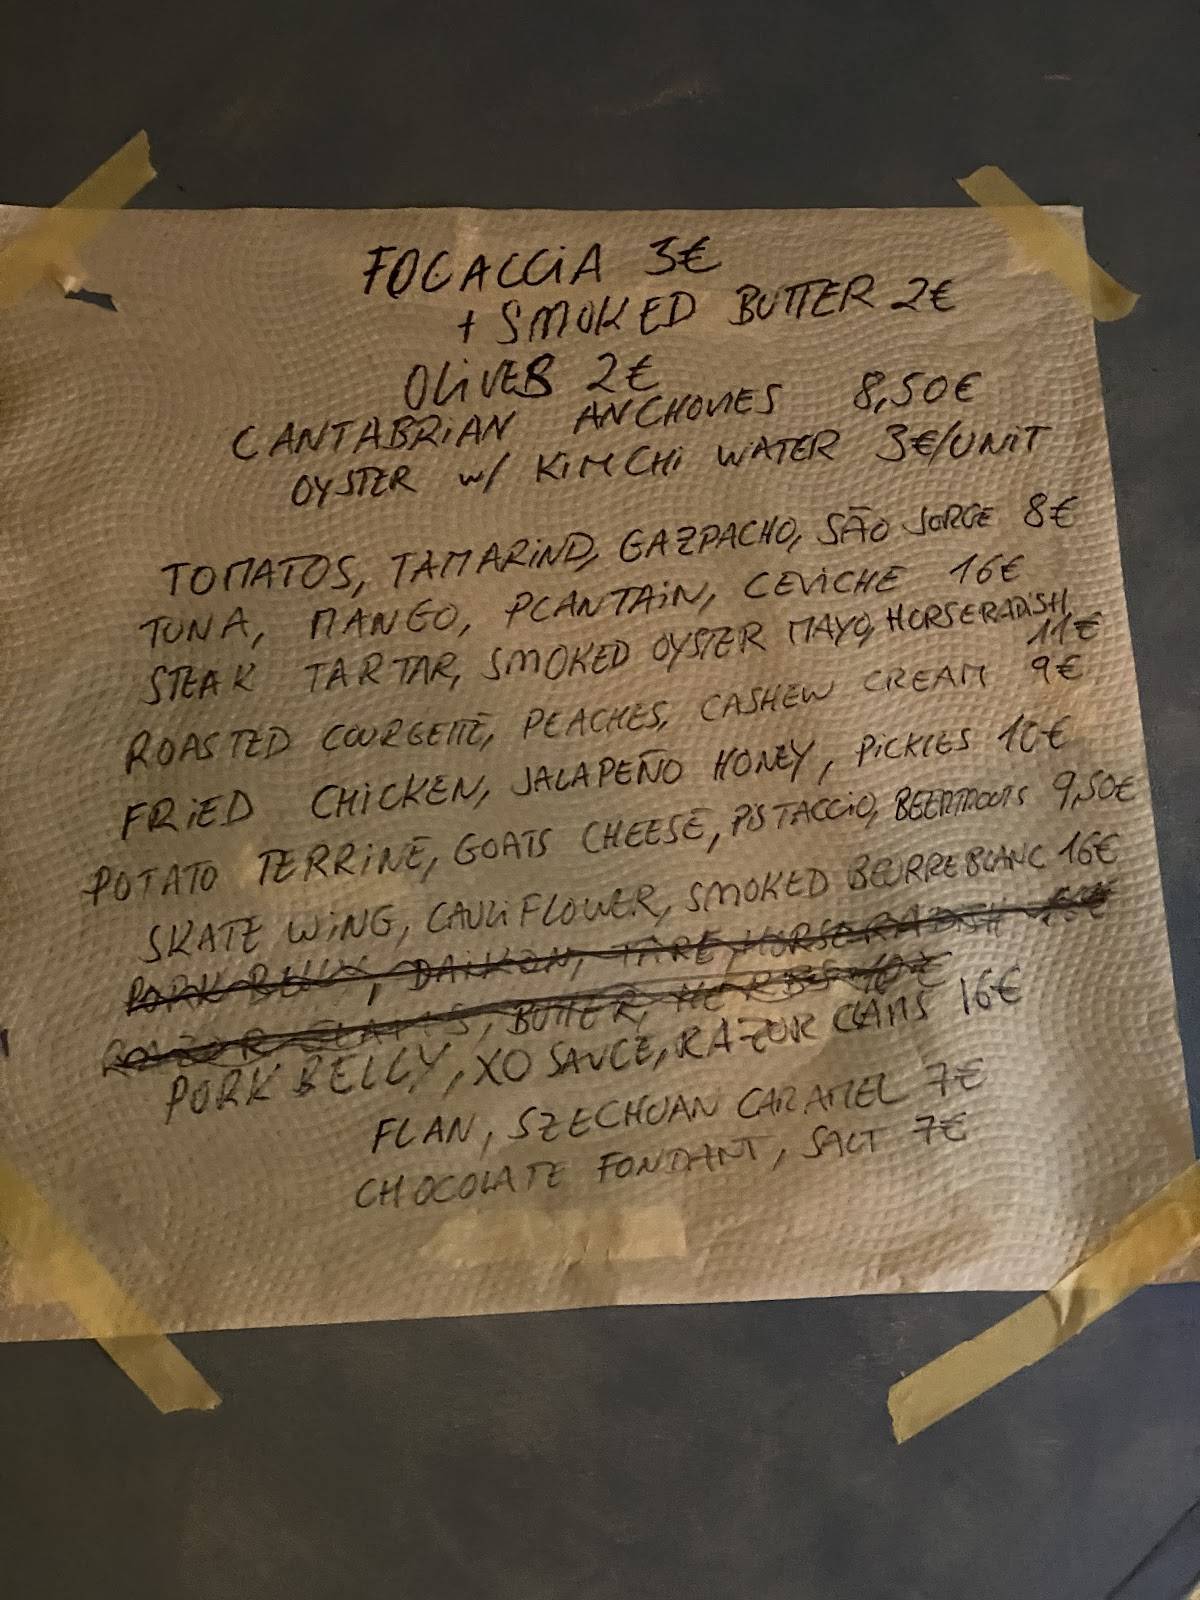 FOCACCIA 3€
+ SMOKED BUTTER 2€
OLIVES 2€
CANTABRIAN ANCHOVIES 8,50€
OYSTER w/ KIMCHI WATER 3€/UNIT
TOMATOS, TAMARIND, GAZPACHO, SÃO JORGE 8€
TUNA, MANGO, PLANTAIN, CEVICHE 16€
STEAK TARTAR, SMOKED OYSTER MAYO, HORSERADISH
11€
ROASTED COURGETTE, PEACHES, CASHEW CREAM 9€
FRIED CHICKEN, JALAPEÑO HONEY, PICKLES 10€
POTATO TERRINE, GOATS CHEESE, PISTACCIO, BEETROOTS 9,50€
SKATE WING, CAULIFLOWER, SMOKED BEURRE BLANC 16€
PORK BELLY, DAIKON, TARE, HORSERADISH
RAZOR CLAMS, BUTTER, HERBS 10€
PORK BELLY, XO SAUCE, RAZOR CLAMS 16€
FLAN, SZECHUAN CARAMEL 7€
CHOCOLATE FONDANT, SALT 7€